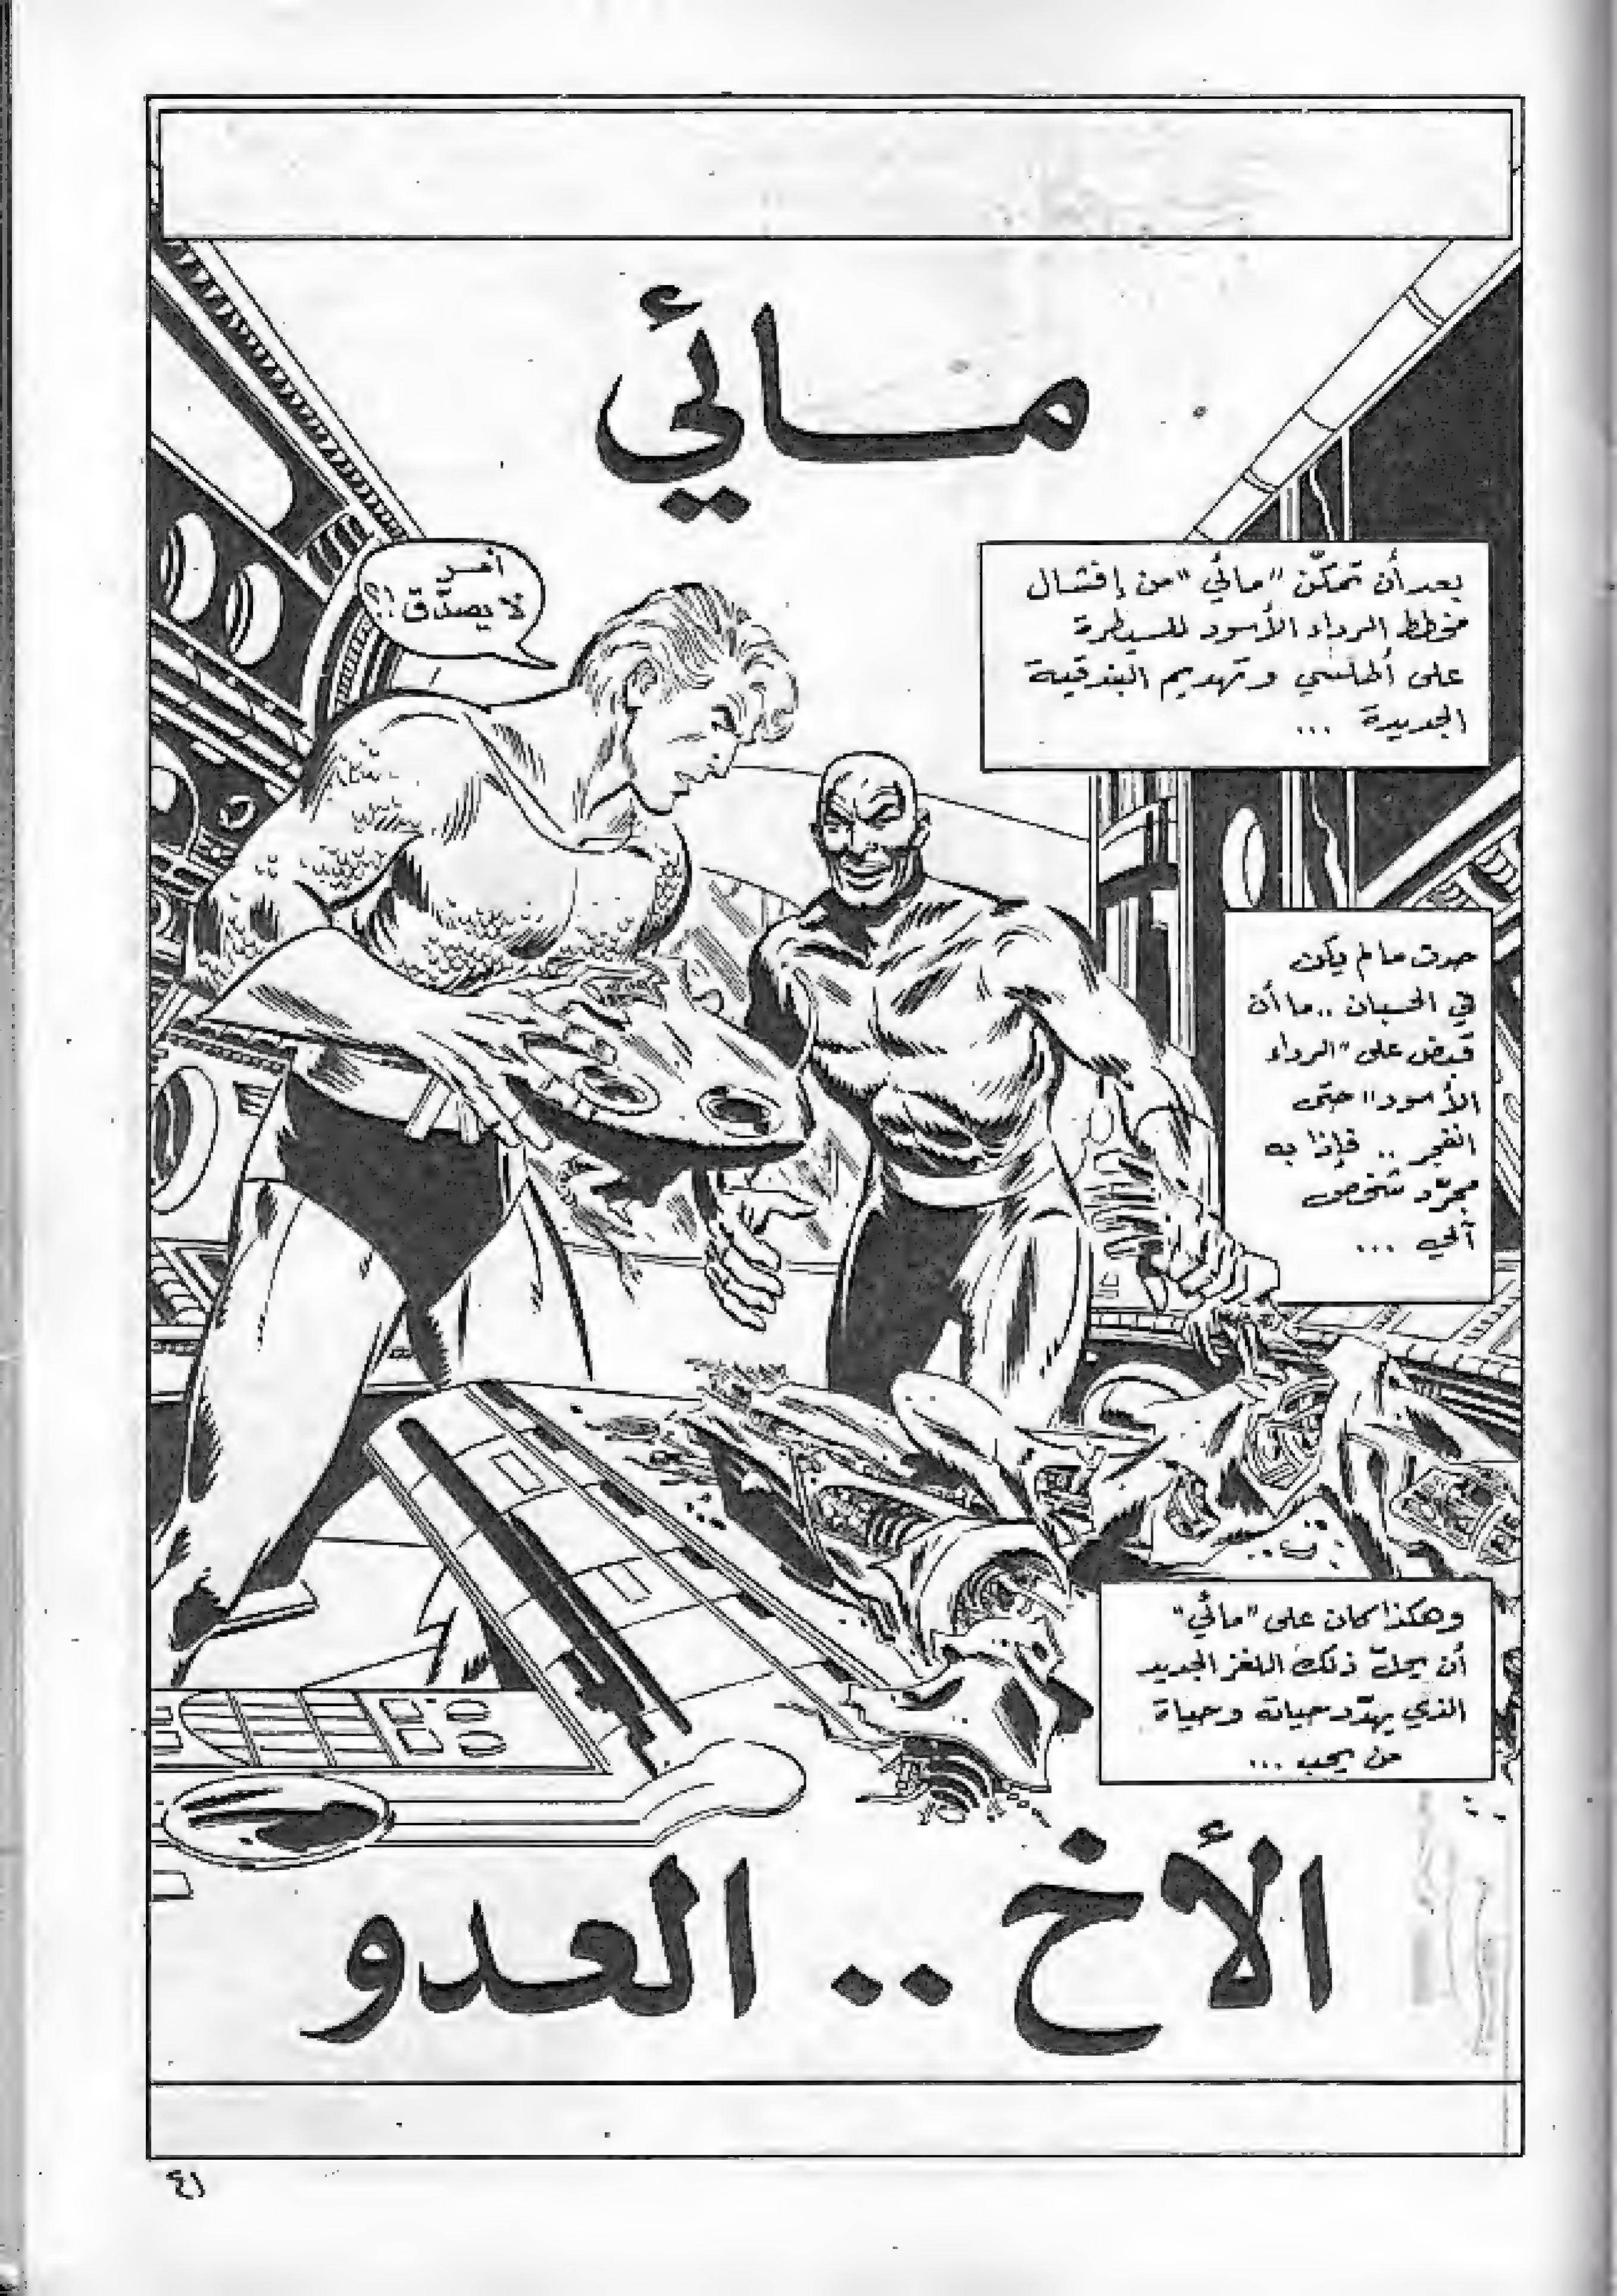 مائي
بعد أن تمكّن "مائي" من إفشال
مخطط الرداء الأسود للسيطرة
على أطلسي وتهديم البندقية
الجديدة ...
أمر
لا يصدّق!؟
حدث ما لم يكن
في الحسبان .. ما أن
قبض على "الرداء
الأسود" حتى
انفجر .. فإذا به
مجرّد شخص
آلي ...
وهكذا كان على "مائي"
أن يحلّ ذلك اللغز الجديد
الذي يهدّد حياته وحياة
من يحب ...
الأخ .. العدو
٤١